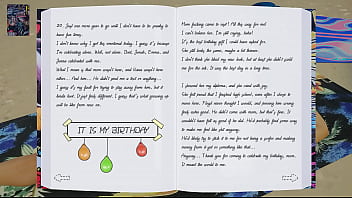 20. Just one more year to go until I don't have to be sneaky to
have fun times.
I don't know why I got this emotional today. I guess it's because
I'm celebrating alone. Well, not alone. Dad, Jonah, Emma, and
Jenna celebrated with me.
What I mean is that mom wasn't here, and Vance wasn't here
either... And him... He didn't send me a text or anything...
I guess it's my fault for trying to stay away from him, but it
hurts too. It just feels different. I guess that's what growing up
will be like from now on.
IT IS MY BIRTHDAY
Mom fucking came to visit! All the way for me!
I can't believe it. I'm still crying, haha!
It's the best birthday gift I could have asked for.
She still looks the same, maybe a bit thinner.
I don't think she liked my new look, but at least she didn't yell
me for the ink. It was the best day in a long time.
I showed her my diploma, and she went with joy.
She felt proud that I finished high school, even after I chose to
move here. Floyd never thought I would, and proving him wrong
feels extra good. He didn't come with mom, but that's fine. It
wouldn't have felt as good if he did. He'd probably find some way
to make me feel like shit anyway.
He'd likely try to pick it to me for not being a prefer and making
money from it yet or something like that...
Anyway... I thank you for coming to celebrate my birthday, mom.
It meant the world to me.